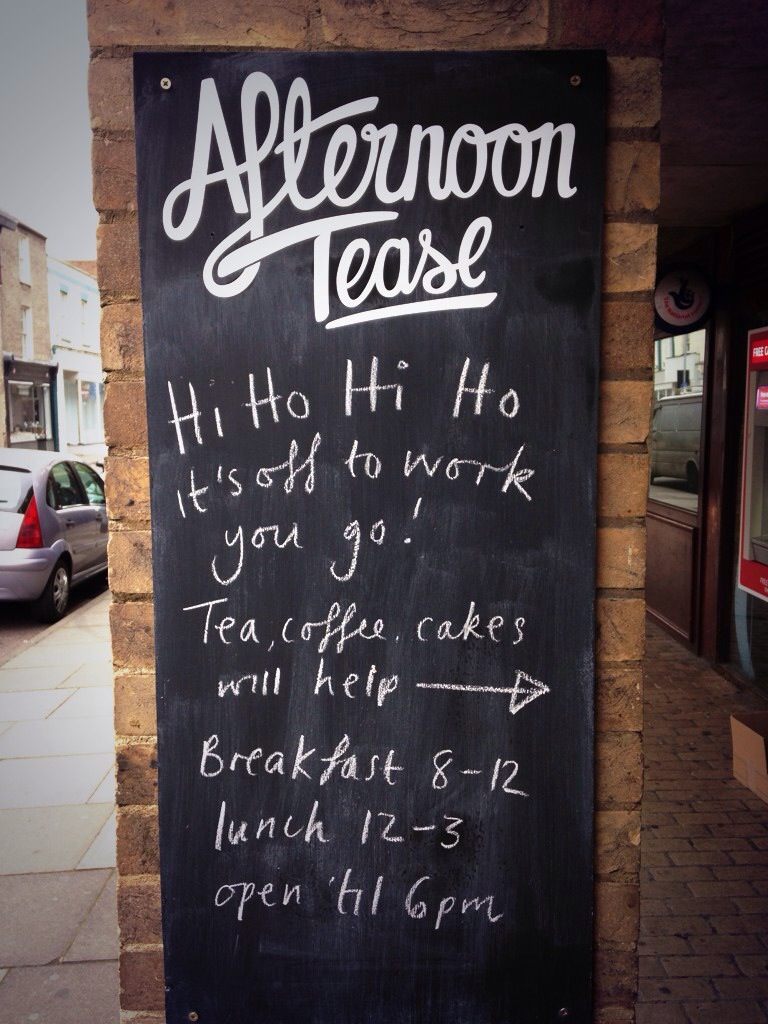 Afternoon
Tease
Hi Ho Hi Ho
it's off to work
you go!
Tea, coffee, cakes
will help
Breakfast 8-12
lunch 12-3
open 'til 6pm
FREE